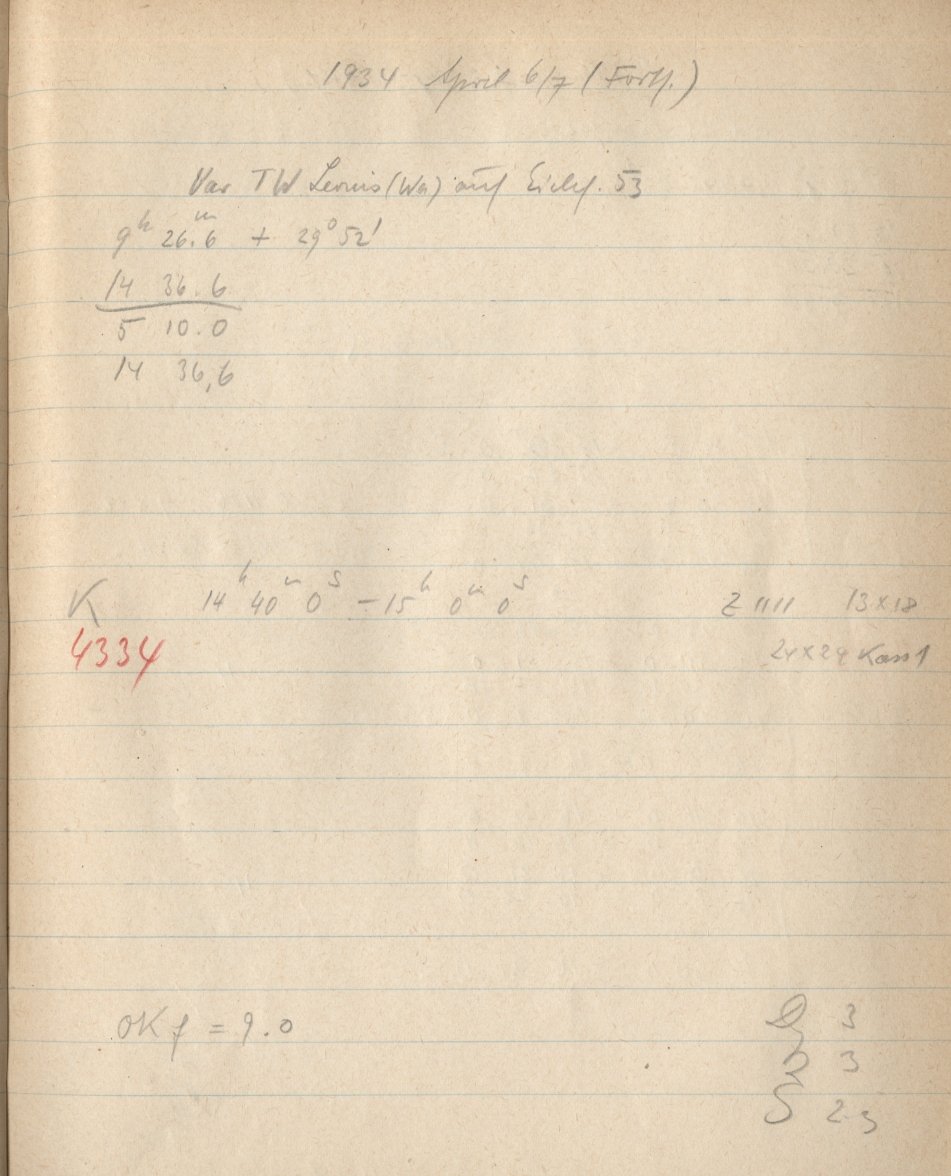 1934 April 6/7 (Forts.)
Var TW Leonis (Wa) auf Eichf. 53
9h 26.m6 + 29° 52'
14 36.6
5 10.0
14 36,6
K 14h 40m 0s - 15h 0m 0s Z 1111 13x18
4334 24x24 Kass 1
OK f = 9.0
3
3
S 2-3